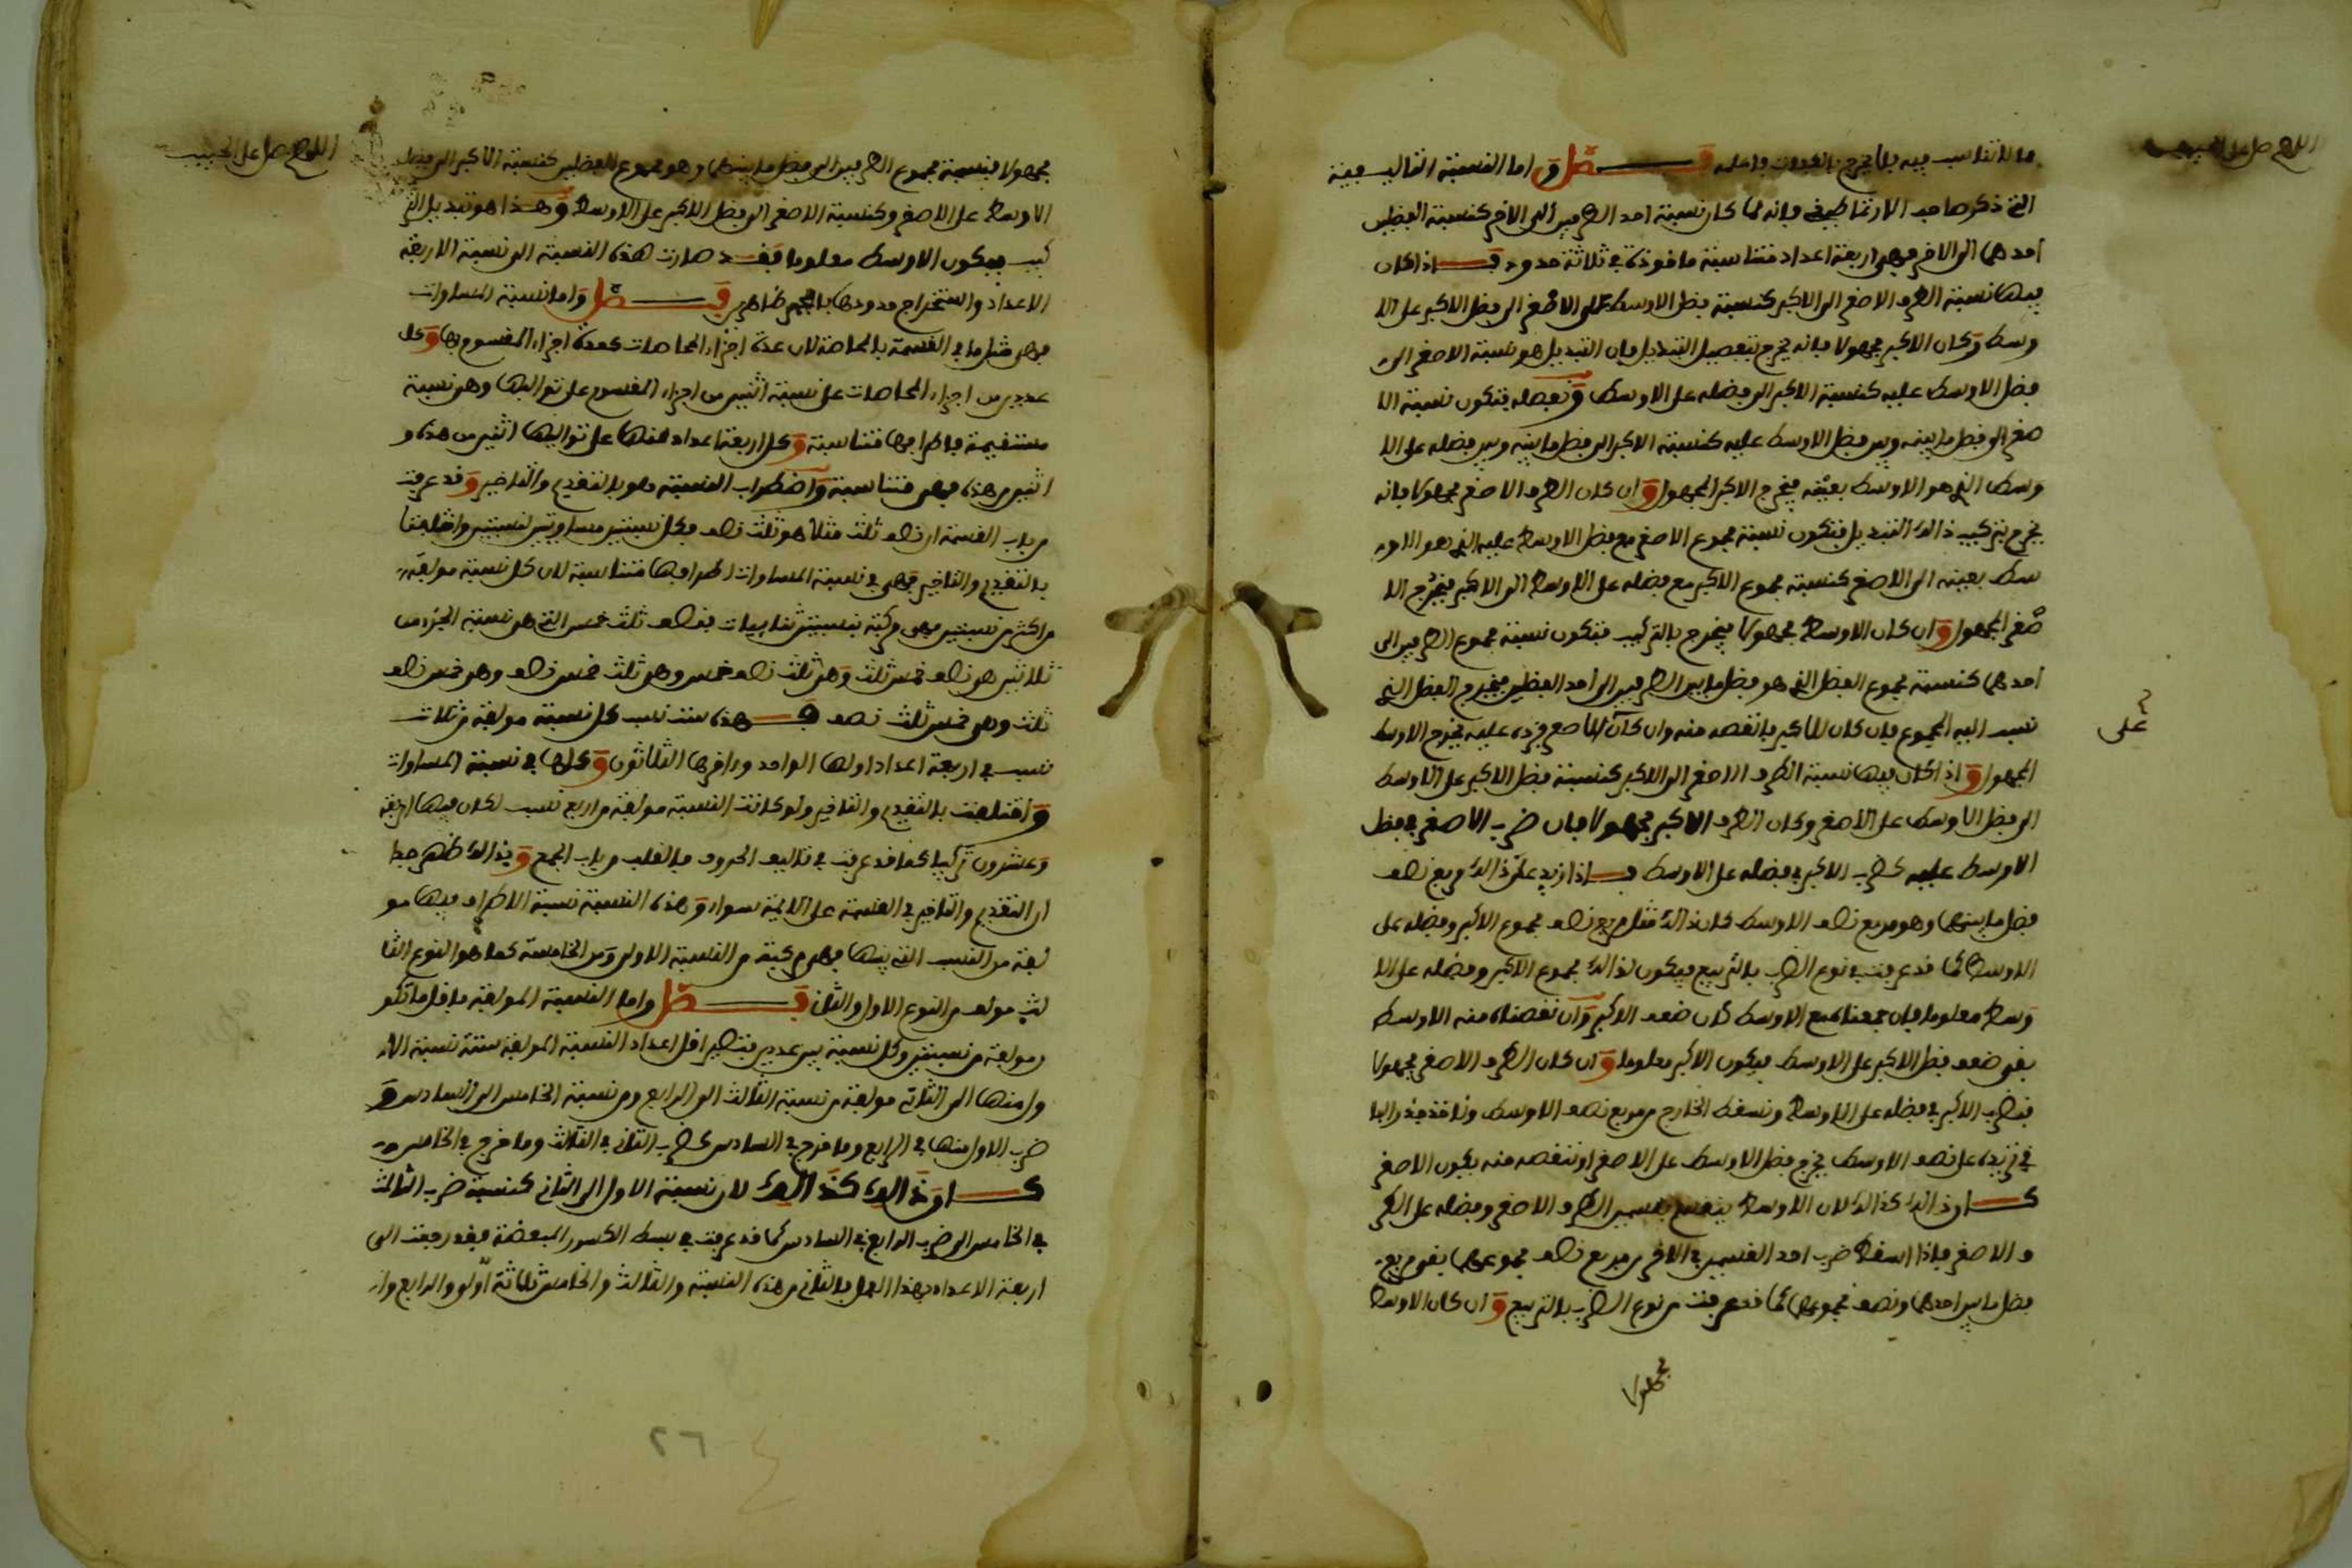 اللهم صل على الحبيب
ما لا تناسب فيه فلا يخرج بالعدوت واعلم فصل واما النسبة التاليفية
التي ذكر صاحب الارتماطيقي فانه لما كان نسبة احد الطرفين الى الاخر كنسبة الفضلين
احدهما الى الاخر فهي اربعة اعداد متناسبة ماخوذة في ثلاثة حدود فاذا كان
فيها نسبة الطرف الاصغر الى الاكبر كنسبة فضل الاوسط على الاصغر الى فضل الاكبر على الا
وسط وكان الاكبر مجهولا فانه يخرج بتفصيل التبديل فان التبديل هو نسبة الاصغر الى
فضل الاوسط عليه كنسبة الاكبر الى فضله على الاوسط وتفصله فتكون نسبة الا
صغر الى فضل ما بينه وبين فضل الاوسط عليه كنسبة الاكبر الى فضل ما بينه وبين فضله على الا
وسط الذي هو الاوسط بعينه فيخرج الاكبر المجهول وان كان الطرف الاصغر مجهولا فانه
يخرج بتركيب ذالك التبديل فتكون نسبة مجموع الاصغر مع فضل الاوسط عليه الذي هو الاو
سط بعينه الى الاصغر كنسبة مجموع الاكبر مع فضله على الاوسط الى الاكبر فيخرج الا
صغر المجهول وان كان الاوسط مجهولا فيخرج بالتركيب فتكون نسبة مجموع الطرفين الى
احدهما كنسبة مجموع الفضل الذي هو فضل ما بين الطرفين الى احد الفضلين فيخرج الفضل الذي
نسب اليه المجموع فان كان للاكبر فانقصه منه وان كان للاصغر فزده عليه يخرج الاوسط
على
المجهول واذا كان فيها نسبة الطرف الاصغر الى الاكبر كنسبة فضل الاكبر على الاوسط
الى فضل الاوسط على الاصغر وكان الطرف الاكبر مجهولا فان ضرب الاصغر في فضل
الاوسط عليه كضرب الاكبر في فضله على الاوسط فاذا زيد على ذالك مربع نصف
فضل ما بينهما وهو مربع نصف الاوسط كان ذالك مثل مربع نصف مجموع الاكبر وفضله على
الاوسط كما قد عرفت في نوع الضرب بالتربيع فيكون لذالك مجموع الاكبر وفضله على الا
وسط معلوما فان جمعناه مع الاوسط كان ضعف الاكبر وان نقصناه منه الاوسط
بقي ضعف فضل الاكبر على الاوسط فيكون الاكبر معلوما وان كان الطرف الاصغر مجهولا
فنضرب الاكبر في فضله على الاوسط ونسقط الخارج من مربع نصف الاوسط وناخذ جذر البا
في نزيده على نصف الاوسط يخرج فضل الاوسط على الاصغر او ننقصه منه يكون الاصغر
كان ذالك كذالك لان الاوسط ينقسم بقسمين الطرف الاصغر وفضله على الطر
ف الاصغر فاذا اسقط ضرب احد القسمين في الاخر من مربع نصف مجموعهما بقي مربع
فضل ما بين احدهما ونصف مجموعهما كما قد عرفت من نوع الضرب بالتربيع وان كان الاوسط
مجهولا
اللهم صل على الحبيب
مجهولا فنسبة مجموع الطرفين الى فضل ما بينهما وهو مجموع الفضلين كنسبة الاكبر الى فضل
الاوسط على الاصغر وكنسبة الاصغر الى فضل الاكبر على الاوسط وهذا هو تبديل التر
كيب فيكون الاوسط معلوما فقد صارت هذه النسبة الى نسبة الاربعة
الاعداد واستخراج حدودها بالجبر ظاهر فصل واما نسبة المساوات
فهي مثل ما في القسمة بالمحاصة لان عدة اجزاء المحاصات كعدة اجزاء المقسوم بها وكل
عددين من اجزاء المحاصات على نسبة اثنين من اجزاء المقسوم على تواليها وهي نسبة
مستقيمة فاطرافها متناسبة وكل اربعة اعداد منها على تواليها اثنين من هذه و
اثنين من هذه فهي متناسبة واضطراب النسبة هو بالتقديم والتاخير وقد عرفت
من باب القسمة ان نصف ثلث مثلا هو ثلث نصف فكل نسبتين مساويتين لنسبتين واختلفتا
بالتقديم والتاخير فهي في نسبة المساوات اطرافها متناسبة لان كل نسبة مولفة
من اكثر من نسبتين فهي مركبة بنسبتين فنصف ثلث خمس التي هي نسبة الجزء من
ثلاثين هو نصف خمس ثلث وهو ثلث نصف خمس وهو ثلث خمس نصف وهو خمس نصف
ثلث وهو خمس ثلث نصف فهذه ست نسب كل نسبة مولفة من ثلاث
نسب في اربعة اعداد اولها الواحد واخرها الثلاثون وكلها في نسبة المساوات
واختلفت بالتقديم والتاخير ولو كانت النسبة مولفة من اربع نسب لكان فيها اربعة
وعشرون تركيبا كما قد عرفت في تاليف الحروف بالقلب من باب الجمع وبذالك ظهر جدا
ان التقديم والتاخير في القسمة على الايمة سواء وهذه النسبة نسبة الاطراف فيها مو
لفة من النسب التي بينها فهي مركبة من النسبة الاولى ومن الخامسة كما هو النوع الثا
لث مولف من النوع الاول والثاني فصل واما النسبة المولفة فاقل ما تكو
ن مولفة من نسبتين وكل نسبة بين عددين فتصير اقل اعداد النسبة المولفة ستة نسبة الا
ول منها الى الثاني مولفة من نسبة الثالث الى الرابع ومن نسبة الخامس الى السادس و
ضرب الاول منها في الرابع وما خرج في السادس كضرب الثاني في الثالث وما خرج في الخامس و
كان ذالك كذالك لان نسبة الاول الى الثاني كنسبة ضرب الثالث
في الخامس الى ضرب الرابع في السادس كما قد عرفت في بسط الكسور المبعضة فقد رجعت الى
اربعة الاعداد بهذا العمل فالثاني من هذه النسبة والثالث والخامس ثلاثة اول والرابع وا
٢٦